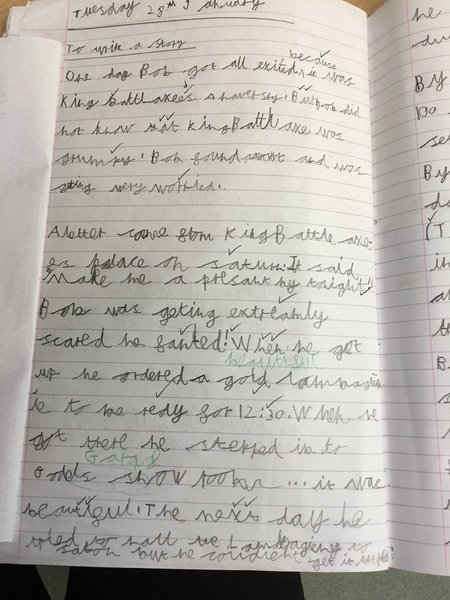 Tuesday 28th January
To write a story
because
One day Bob got all exited, it was
King Battleaxe's anaversry! But Bob did
not know that King Battle axe was
grumpy! Bob found out and was
geting very worried.
A letter came from King Battle axe
es palace on saturn. It said
"Make me a presant by tonight!"
Bob was geting extreamly
scared he fanted! When he got
beautiful
up he ordered a gold lambagini
to be redy for 12:30. When he
got there he stepped in to
Garads
Godels show room ... it was
beautyful. The next day he
tried to
saton but he get it
he
By
Do
By